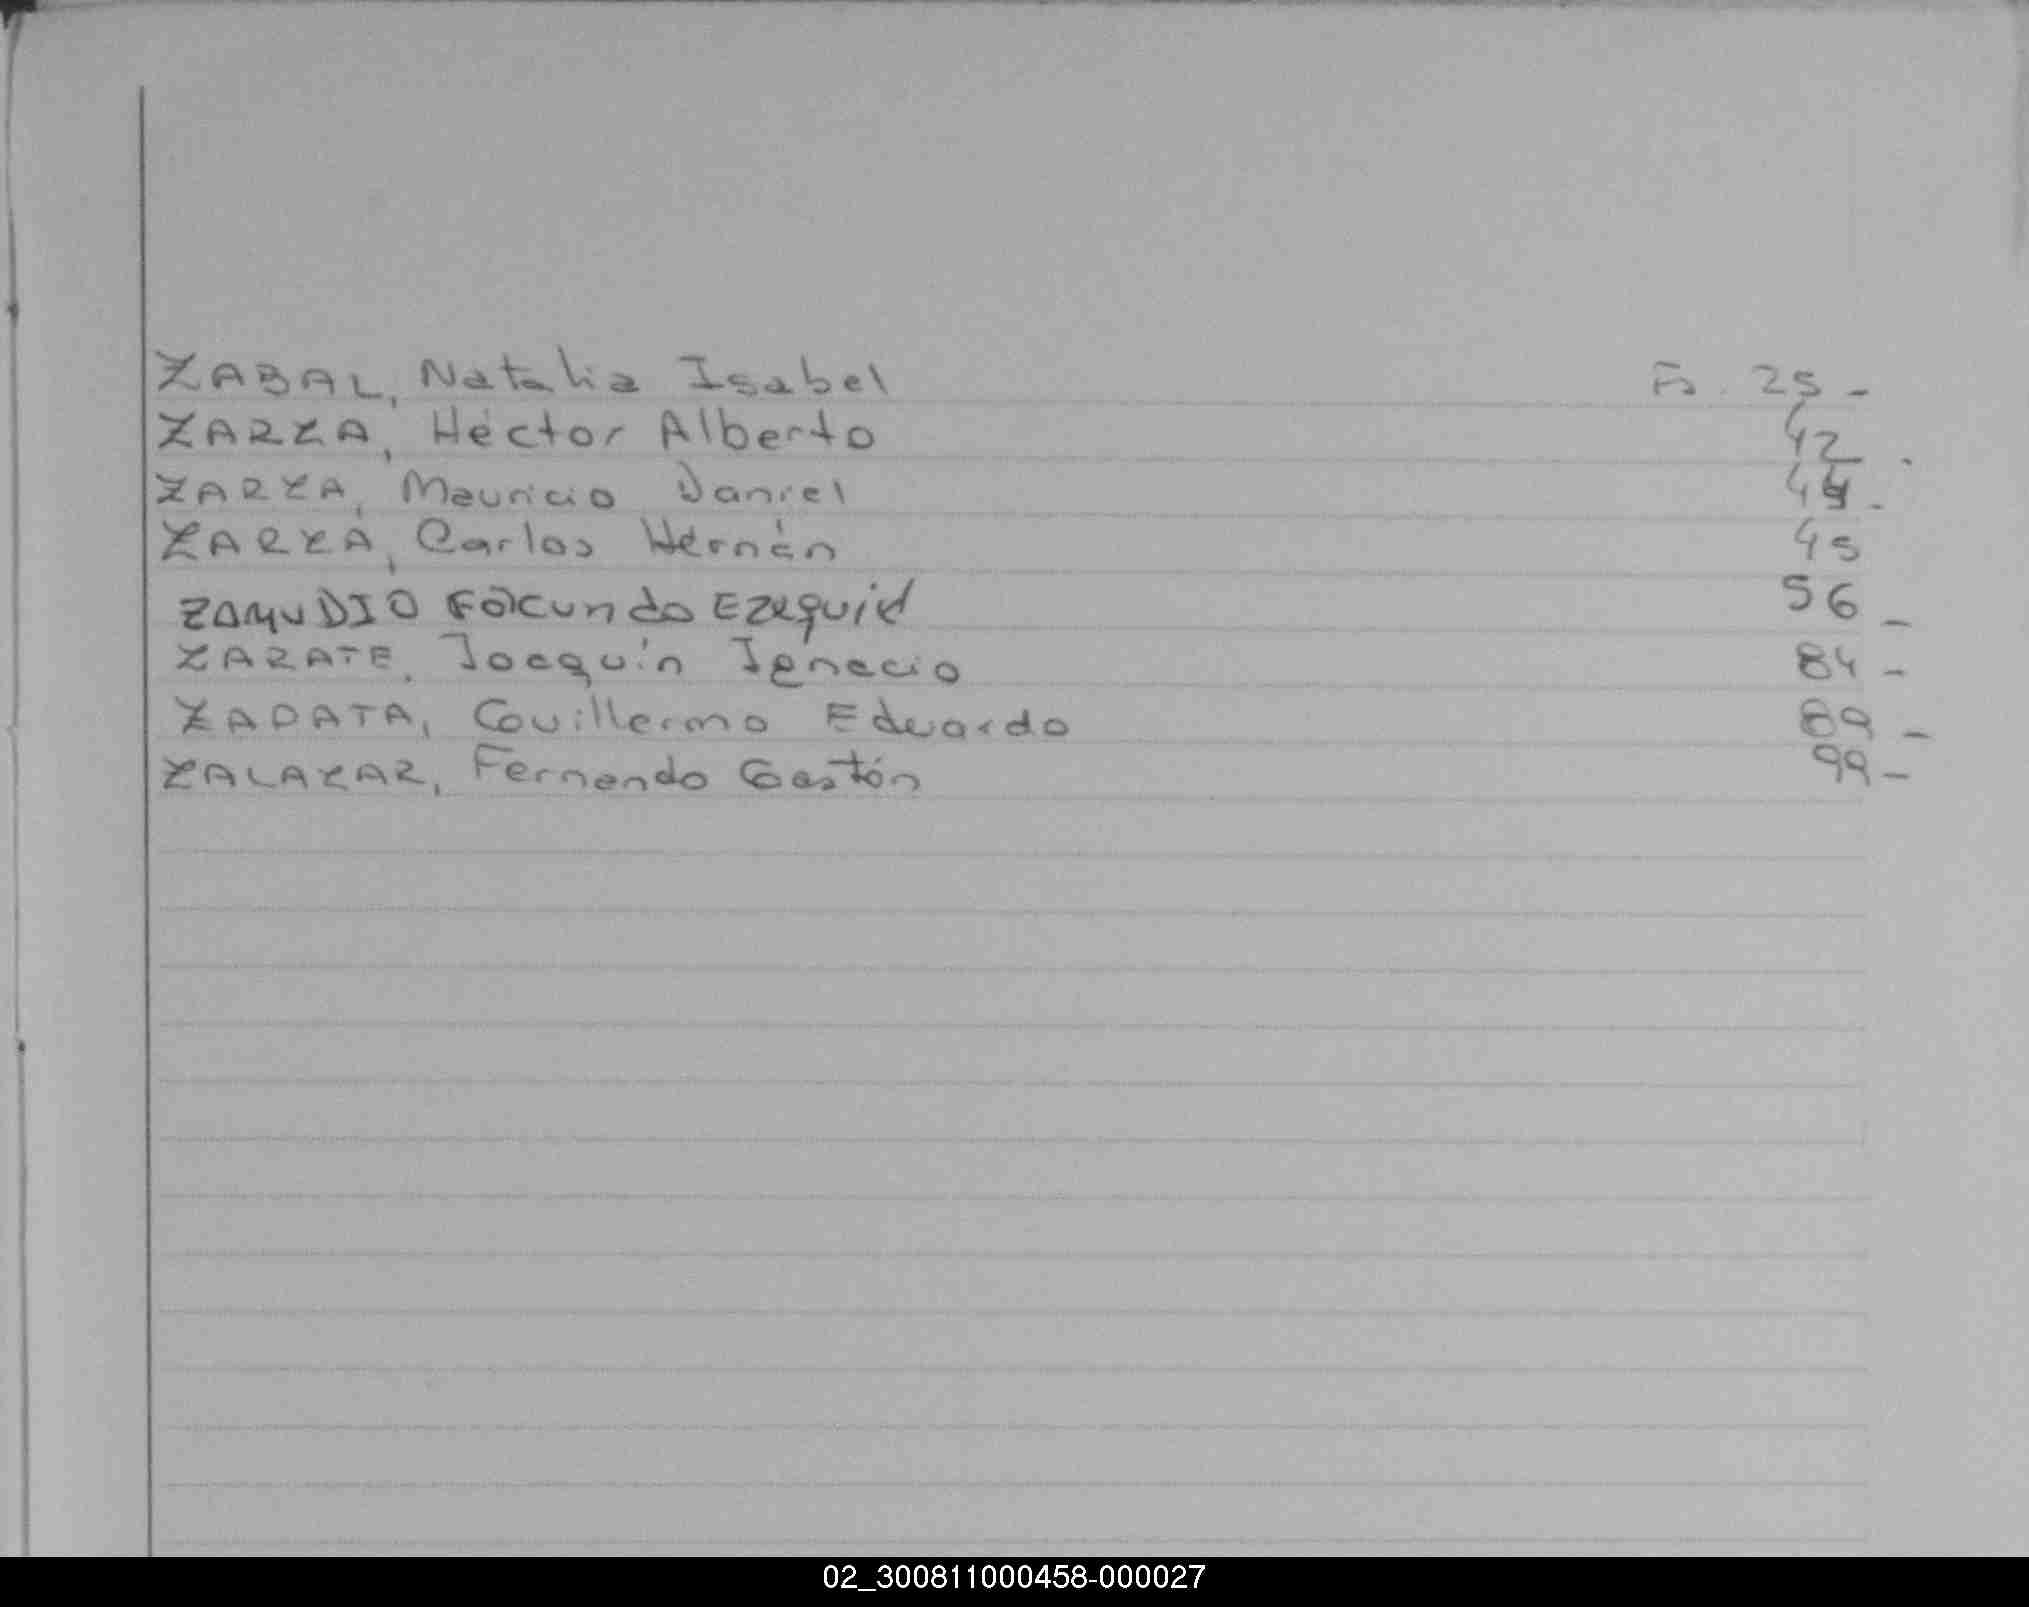 ZABAL, Natalia Isabel Fs. 25 -
ZARZA, Héctor Alberto 42 -
ZARZA, Mauricio Daniel 44 -
ZARZA, Carlos Hernán 45
ZAMUDIO Facundo Ezequiel 56 -
ZARATE, Joaquín Ignacio 84 -
ZAPATA, Guillermo Eduardo 89 -
ZALAZAR, Fernando Gastón 99 -
02_300811000458-000027